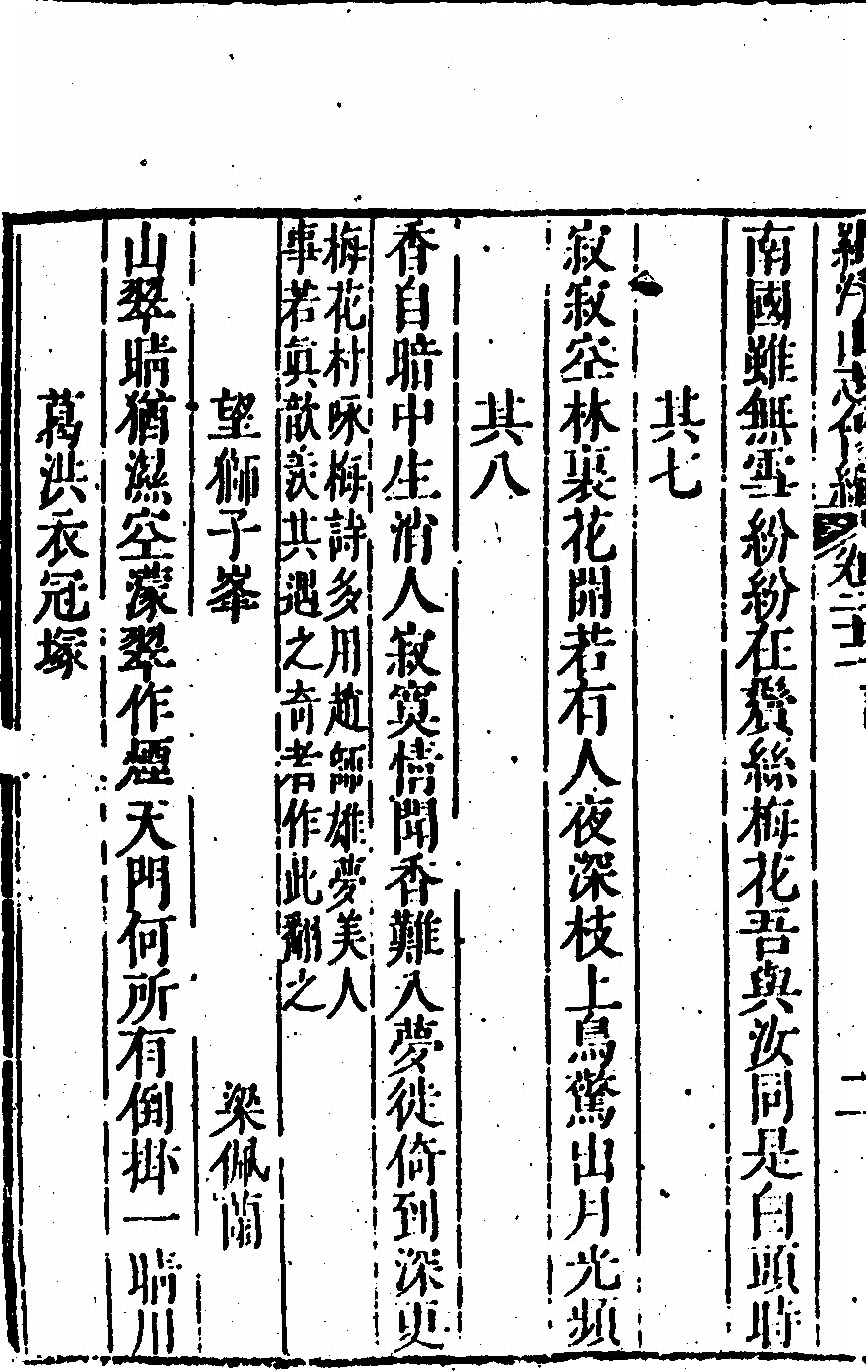 羅浮山志會編 卷二十二 二
南國雖無雪紛紛在鬢絲梅花吾與汝同是白頭時
其七
寂寂空林裏花開若有人夜深枝上鳥驚出月光頻
其八
香自暗中生消人寂寞情聞香難入夢徙倚到深更
梅花村咏梅詩多用趙師雄夢美人
事若真歆羨其遇之奇者作此翻之
望獅子峯 梁佩蘭
山翠晴猶濕空濛翠作煙天門何所有倒掛一晴川
葛洪衣冠塚